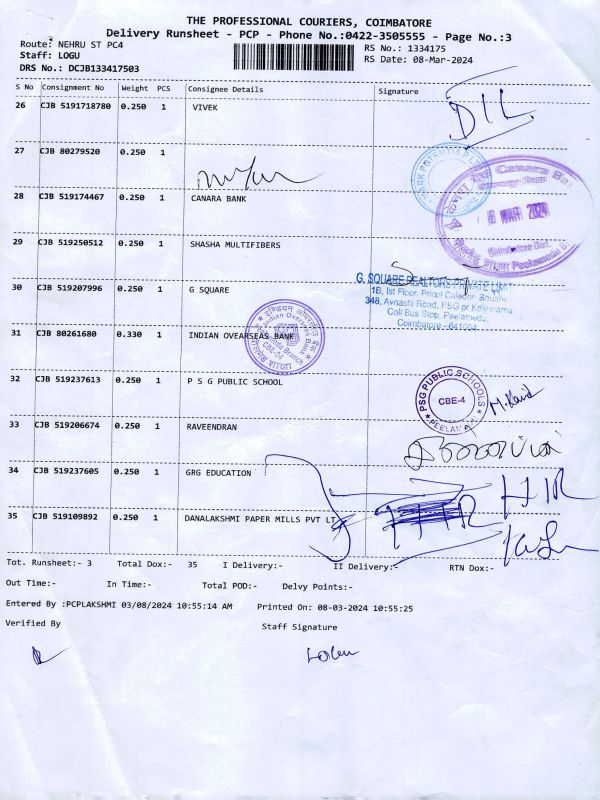 THE PROFESSIONAL COURIERS, COIMBATORE
Delivery Runsheet - PCP - Phone No.:0422-3505555 - Page No.:3
Route: NEHRU ST PC4
RS No.: 1334175
Staff: LOGU
RS Date: 08-Mar-2024
DRS No.: DCJB133417503
S No Consignment No Weight PCS Consignee Details Signature
26 CJB 5191718780 0.250 1 VIVEK
27 CJB 80279520 0.250 1
28 CJB 519174467 0.250 1 CANARA BANK
Canara Bank
MAR 2024
Coimbatore Dist.
Peelamedu
29 CJB 519250512 0.250 1 SHASHA MULTIFIBERS
30 CJB 519207996 0.250 1 G SQUARE
G. SQUARE REALTORS PRIVATE LIMIT
1B, Ist Floor, Pricol Caledor Square
348, Avnashi Road, PSG or Krishnama
Coll Bus Stop, Peelamedu,
Coimbatore - 641004.
31 CJB 80261680 0.330 1 INDIAN OVEARSEAS BANK
Indian Overseas Bank
Branch
CBE-04
32 CJB 519237613 0.250 1 P S G PUBLIC SCHOOL
PSG PUBLIC SCHOOLS
CBE-4
PEELAMEDU
33 CJB 519206674 0.250 1 RAVEENDRAN
34 CJB 519237605 0.250 1 GRG EDUCATION
35 CJB 519109892 0.250 1 DANALAKSHMI PAPER MILLS PVT LT
Tot. Runsheet:- 3 Total Dox:- 35 I Delivery:- II Delivery:- RTN Dox:-
Out Time:- In Time:- Total POD:- Delvy Points:-
Entered By :PCPLAKSHMI 03/08/2024 10:55:14 AM Printed On: 08-03-2024 10:55:25
Verified By Staff Signature
Logu